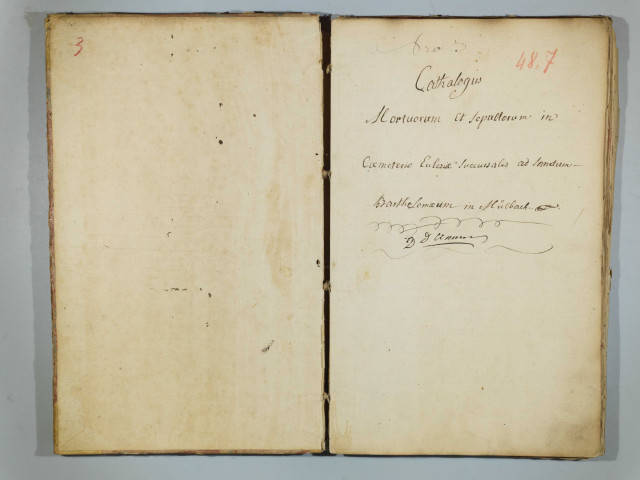 3
Nro 3
48.7
Cathalogus
Mortuorum et sepultorum in
Cœmeterio Eclesiæ succursalis ad Sanctum
Bartholomæum in Mülbach